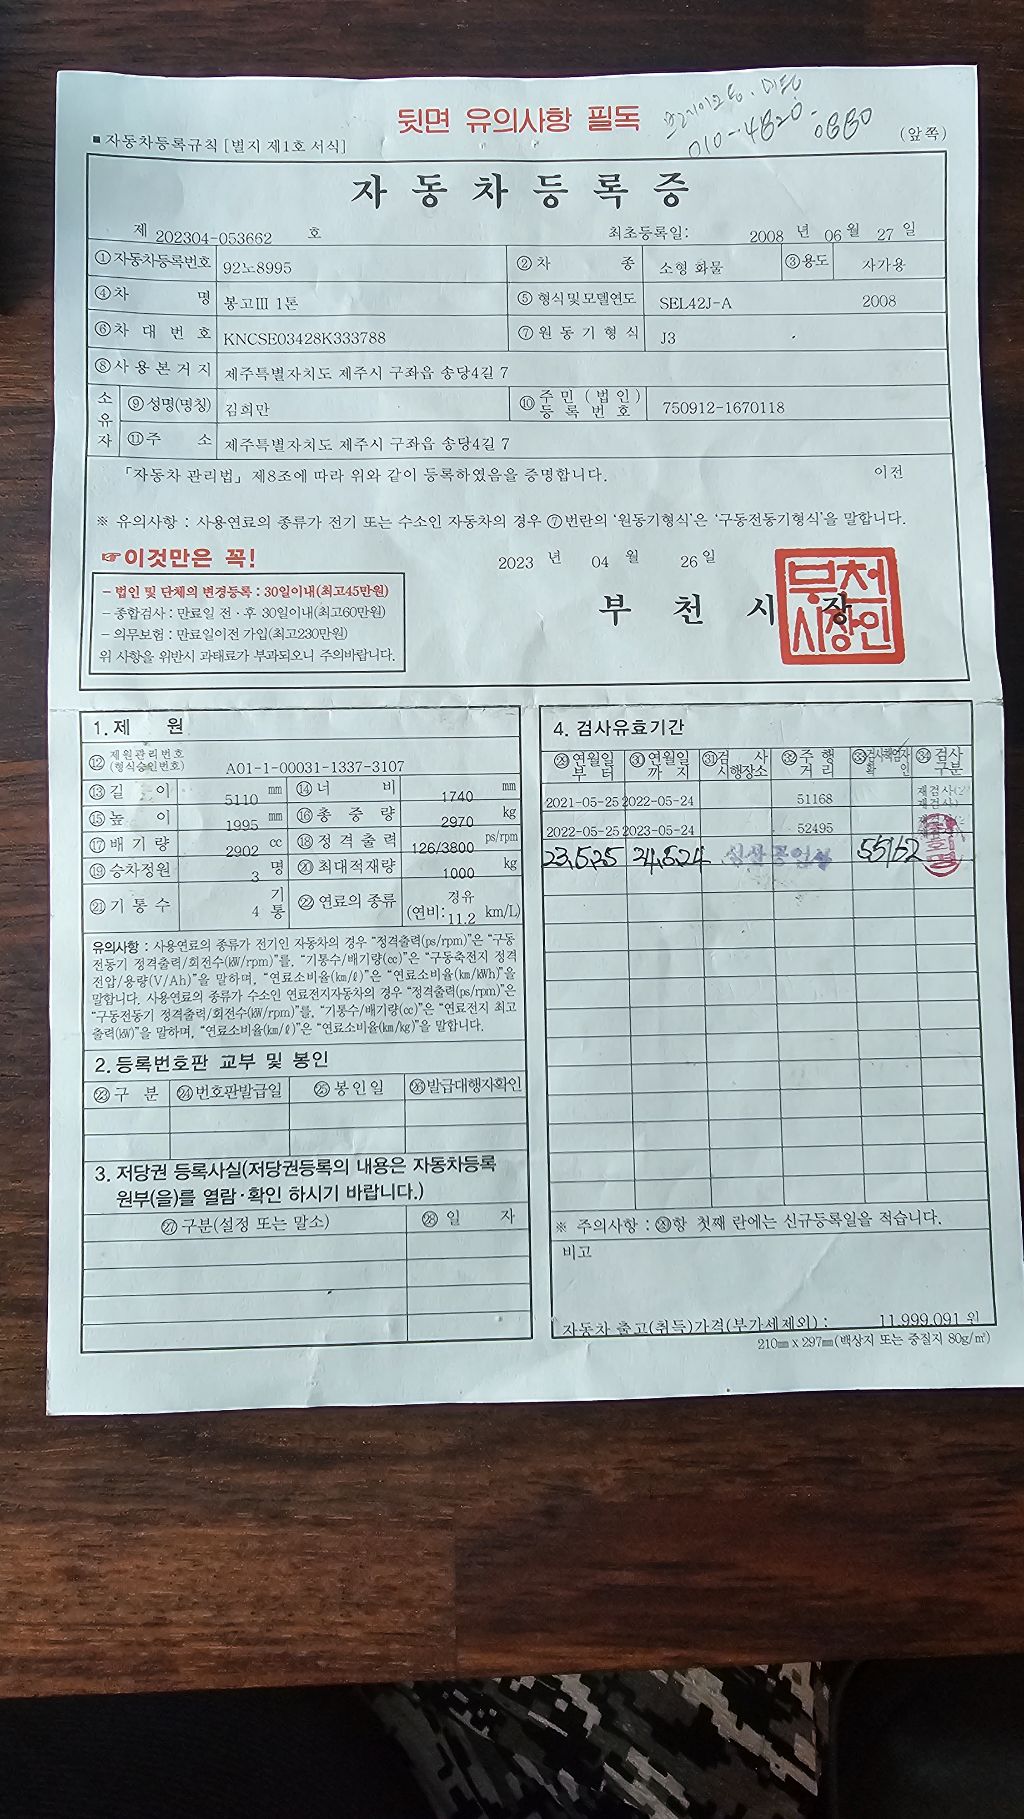 뒷면 유의사항 필독
010-4820-0880
■ 자동차등록규칙 [별지 제1호 서식]
(앞쪽)
자동차등록증
제 202304-053662 호
최초등록일: 2008 년 06 월 27 일
①자동차등록번호 92노8995 ②차 종 소형 화물 ③용도 자가용
④차 명 봉고Ⅲ 1톤 ⑤형식및모델연도 SEL42J-A 2008
⑥차 대 번 호 KNCSE03428K333788 ⑦원 동 기 형 식 J3
⑧사 용 본 거 지 제주특별자치도 제주시 구좌읍 송당4길 7
소유자 ⑨성명(명칭) 김희만 ⑩주민(법인)등록번호 750912-1670118
⑪주 소 제주특별자치도 제주시 구좌읍 송당4길 7
「자동차 관리법」 제8조에 따라 위와 같이 등록하였음을 증명합니다. 이전
※ 유의사항 : 사용연료의 종류가 전기 또는 수소인 자동차의 경우 ⑦번란의 '원동기형식'은 '구동전동기형식'을 말합니다.
☞이것만은 꼭!
2023 년 04 월 26 일
- 법인 및 단체의 변경등록 : 30일이내(최고45만원)
- 종합검사 : 만료일 전·후 30일이내(최고60만원)
- 의무보험 : 만료일이전 가입(최고230만원)
위 사항을 위반시 과태료가 부과되오니 주의바랍니다.
부 천 시 장
부천시장인
1. 제 원
⑫제원관리번호(형식승인번호) A01-1-00031-1337-3107
⑬길 이 5110 mm ⑭너 비 1740 mm
⑮높 이 1995 mm ⑯총 중 량 2970 kg
⑰배 기 량 2902 cc ⑱정 격 출 력 126/3800 ps/rpm
⑲승차정원 3 명 ⑳최대적재량 1000 kg
㉑기 통 수 4 기통 ㉒연료의 종류 경유 (연비: 11.2 km/L)
유의사항 : 사용연료의 종류가 전기인 자동차의 경우 "정격출력(ps/rpm)"은 "구동
전동기 정격출력/회전수(kW/rpm)"를, "기통수/배기량(cc)"은 "구동축전지 정격
전압/용량(V/Ah)"을 말하며, "연료소비율(km/ℓ)"은 "연료소비율(km/kWh)"을
말합니다. 사용연료의 종류가 수소인 연료전지자동차의 경우 "정격출력(ps/rpm)"은
"구동전동기 정격출력/회전수(kW/rpm)"를, "기통수/배기량(cc)"은 "연료전지 최고
출력(kW)"을 말하며, "연료소비율(km/ℓ)"은 "연료소비율(km/kg)"을 말합니다.
2. 등록번호판 교부 및 봉인
㉓구 분 ㉔번호판발급일 ㉕봉인일 ㉖발급대행자확인
3. 저당권 등록사실(저당권등록의 내용은 자동차등록
원부(을)를 열람·확인 하시기 바랍니다.)
㉗구분(설정 또는 말소) ㉘일 자
4. 검사유효기간
㉙연월일부터 ㉚연월일까지 ㉛검사시행장소 ㉜주행거리 ㉝검사책임자확인 ㉞검사구분
2021-05-25 2022-05-24 51168 재검사
2022-05-25 2023-05-24 52495
23.5.25 24.5.24 55162
※ 주의사항 : ㉙항 첫째 란에는 신규등록일을 적습니다.
비고
자동차 출고(취득)가격(부가세제외) : 11,999,091 원
210㎜ x 297㎜(백상지 또는 중질지 80g/㎡)